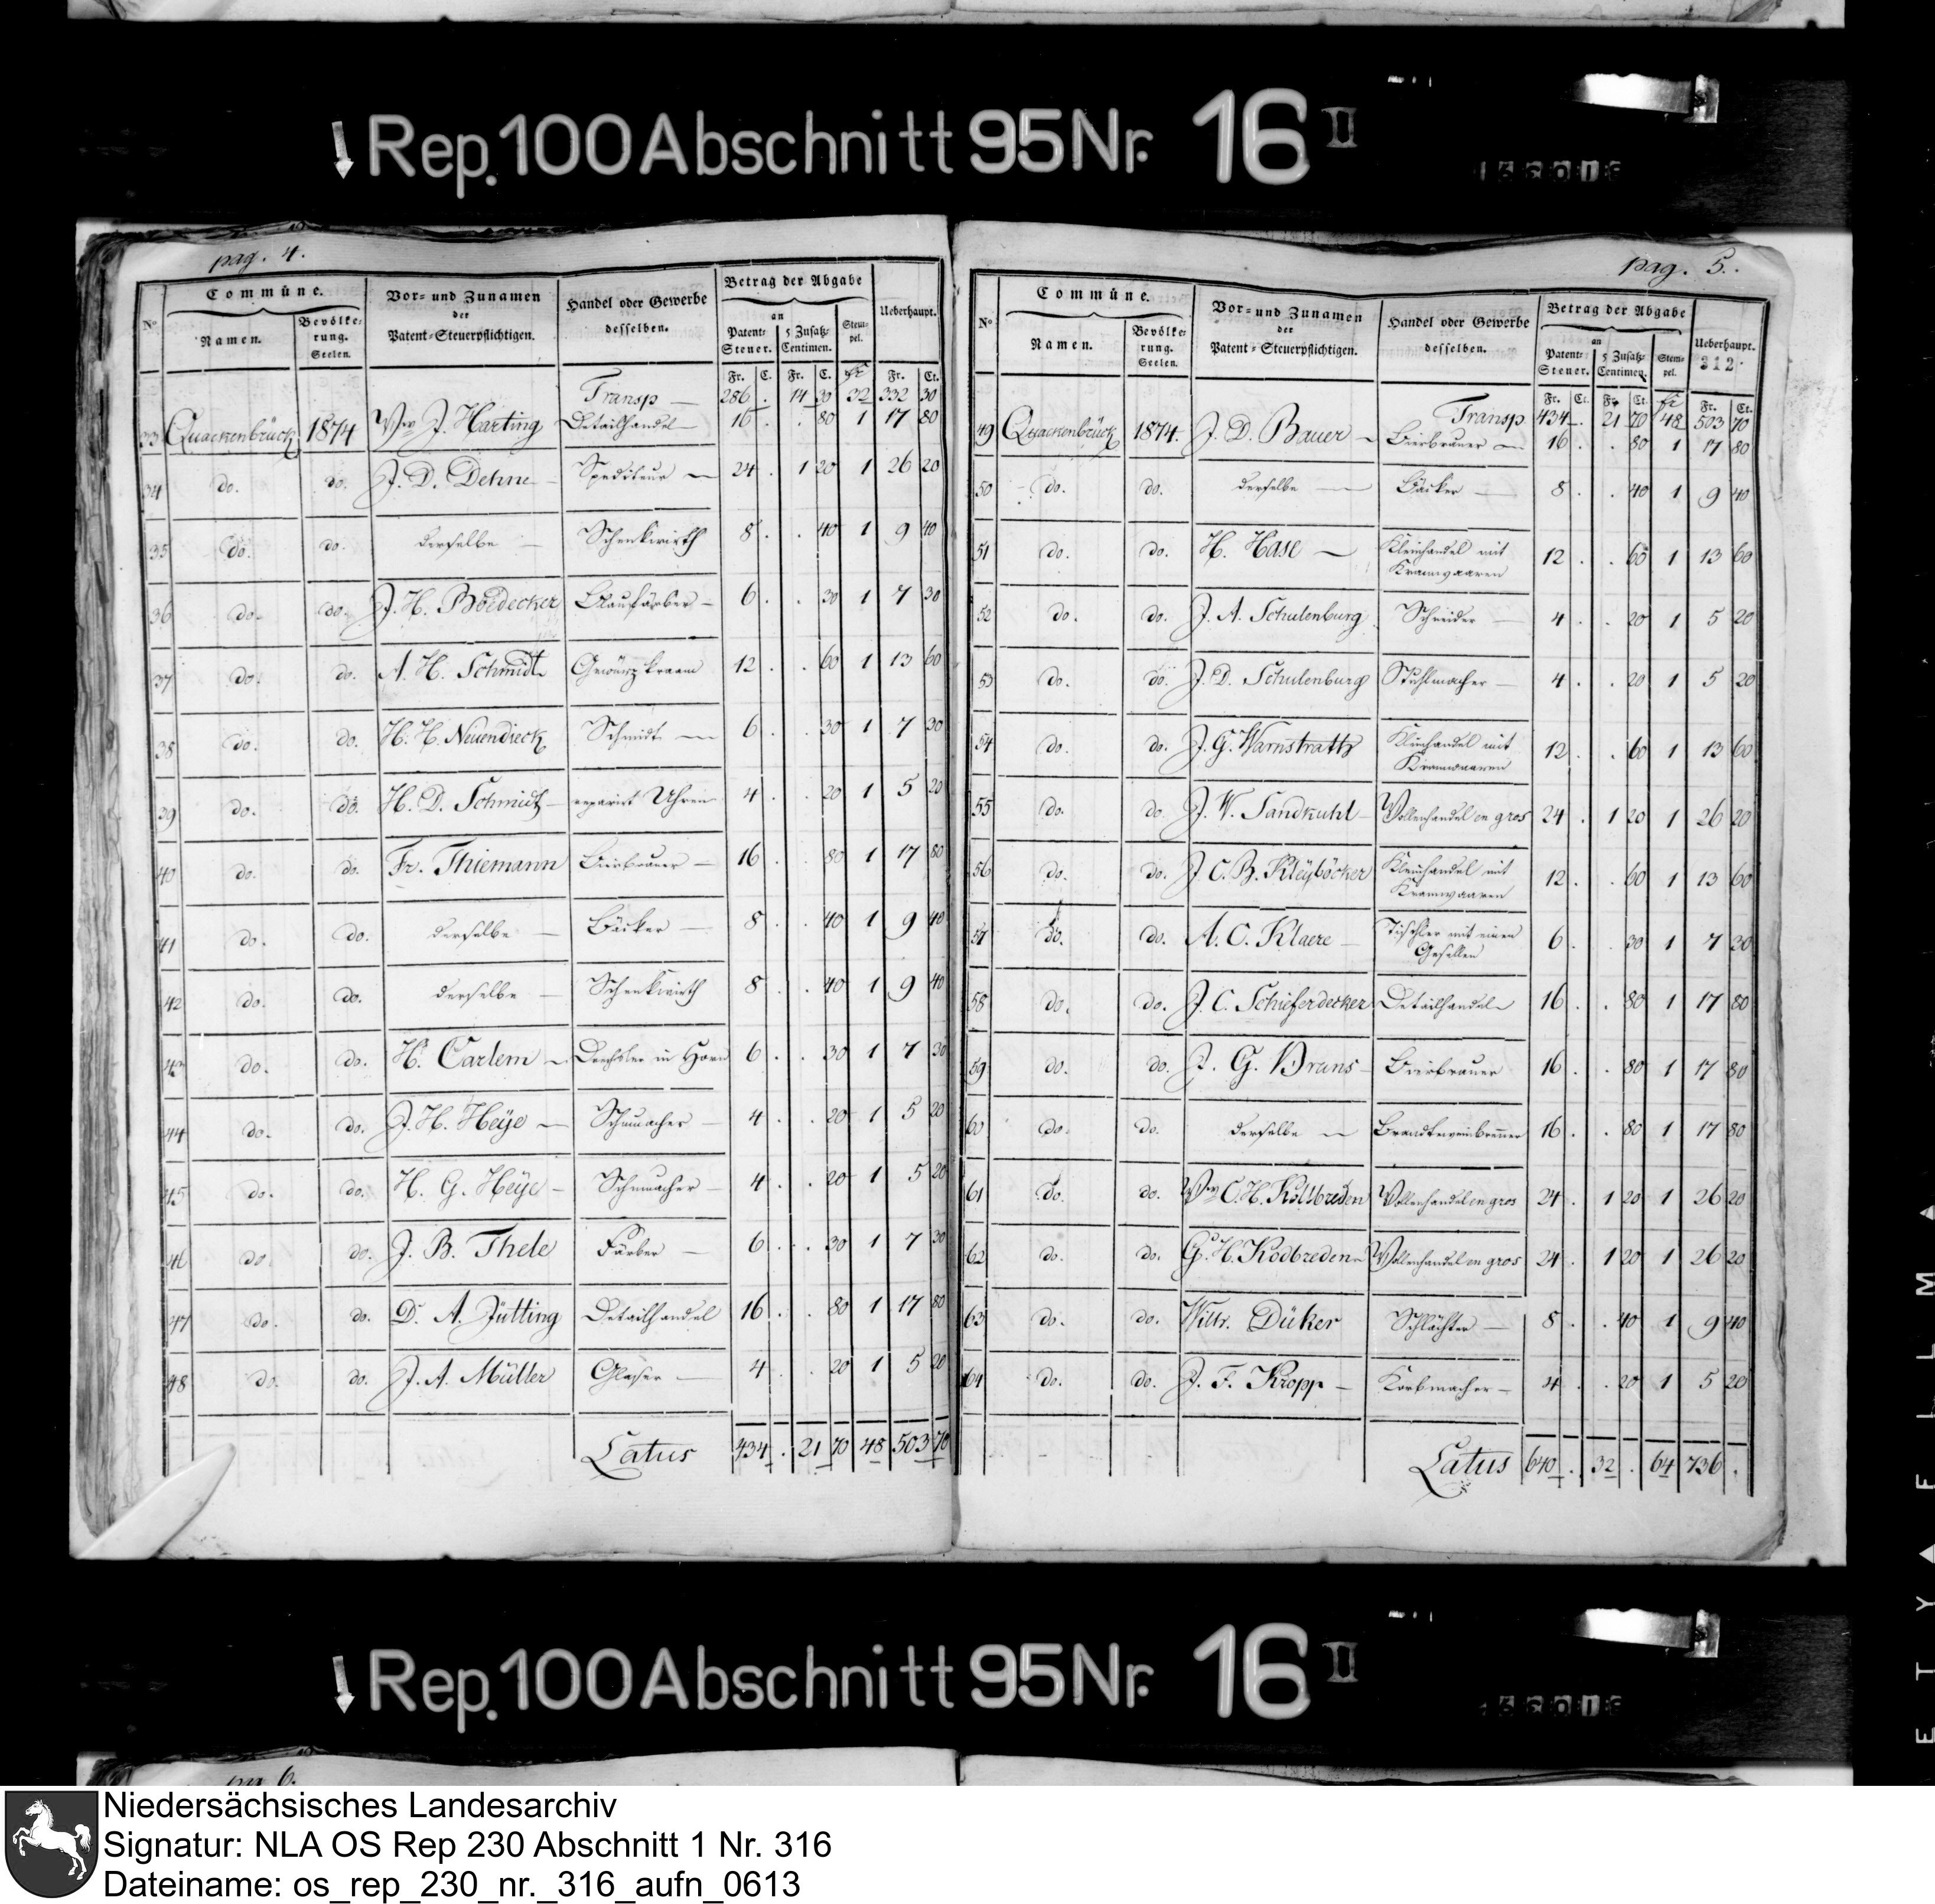 Rep. 100 Abschnitt 95 Nr. 16 II
pag. 4.
Commüne. Vor= und Zunamen der Patent=Steuerpflichtigen. Handel oder Gewerbe desselben. Betrag der Abgabe Ueberhaupt.
No. Namen. Bevölke=rung. Seelen. an Patent=Steuer. 5 Zusatz=Centimen. Stem=pel.
Fr. C. Fr. C. fr Fr. Ct.
Transp — 286 . 14 30 32 332 30
33 Quackenbrück 1874 Wwe J. Harting Detailhandel — 16 . . 80 1 17 80
34 do. do. J. D. Dehne — Spediteur — 24 . 1 20 1 26 20
35 do. do. derselbe — Schenkwirth 8 . . 40 1 9 40
36 do. do. J. H. Boedecker Blaufärber — 6 . . 30 1 7 30
37 do. do. A. H. Schmidt Gewürzkraam 12 . . 60 1 13 60
38 do. do. H. H. Neuendieck Schmidt — 6 . . 30 1 7 30
39 do. do. H. D. Schmidt — reparirt Uhren 4 . . 20 1 5 20
40 do. do. Fr. Thiemann Bierbrauer — 16 . . 80 1 17 80
41 do. do. derselbe — Bäcker — 8 . . 40 1 9 40
42 do. do. derselbe — Schenkwirth 8 . . 40 1 9 40
43 do. do. H. Carlem — Drechsler in Horn 6 . . 30 1 7 30
44 do. do. J. H. Heÿe — Schumacher — 4 . . 20 1 5 20
45 do. do. H. G. Heÿe — Schumacher — 4 . . 20 1 5 20
46 do do. J. B. Thele Färber — 6 . . 30 1 7 30
47 do. do. D. A. Jütting Detailhandel 16 . . 80 1 17 80
48 do. do. J. A. Müller Glaser — 4 . . 20 1 5 20
Latus 434 . 21 70 48 503 70
pag. 5.
Commüne. Vor= und Zunamen der Patent=Steuerpflichtigen. Handel oder Gewerbe desselben. Betrag der Abgabe Ueberhaupt.
No. Namen. Bevölke=rung. Seelen. an Patent=Steuer. 5 Zusatz=Centimen. Stem=pel. 312.
Fr. Ct. Fr. Ct. fr Fr. Ct.
Transp 434 . 21 70 48 503 70
49 Quackenbrück 1874. J. D. Bauer — Bierbrauer — 16 . . 80 1 17 80
50 do. do. derselbe — Bäcker — 8 . . 40 1 9 40
51 do. do. H. Hase — Kleinhandel mit Kramwaaren 12 . . 60 1 13 60
52 do. do. J. A. Schulenburg Schneider — 4 . . 20 1 5 20
53 do. do. J. D. Schulenburg Stuhlmacher — 4 . . 20 1 5 20
54 do. do. J. G. Warnstrath Kleinhandel mit Kramwaaren 12 . . 60 1 13 60
55 do. do J. W. Sandkuhl — Wollenhandel en gros 24 . 1 20 1 26 20
56 do. do. J. C. B. Kleÿböcker Kleinhandel mit Kramwaaren 12 . . 60 1 13 60
57 do. do. A. C. Klaere — Tischler mit einen Gesellen 6 . . 30 1 7 30
58 do. do. J. C. Schieferdecker Detailhandel 16 . . 80 1 17 80
59 do. do. J. G. Bruns — Bierbrauer 16 . . 80 1 17 80
60 do. do. derselbe — Brandteweinbrenner 16 . . 80 1 17 80
61 do. do. Wwe C. H. Wollenhandel en gros 24 . 1 20 1 26 20
62 do. do. G. H. Kodbreden — Wollenhandel en gros 24 . 1 20 1 26 20
63 do. do. Düker Schlächter — 8 . . 40 1 9 40
64 do. do. J. F. Kropp — Korbmacher — 4 . . 20 1 5 20
Latus 640 . 32 . 64 736 .
Rep. 100 Abschnitt 95 Nr. 16 II
Niedersächsisches Landesarchiv
Signatur: NLA OS Rep 230 Abschnitt 1 Nr. 316
Dateiname: os_rep_230_nr._316_aufn_0613